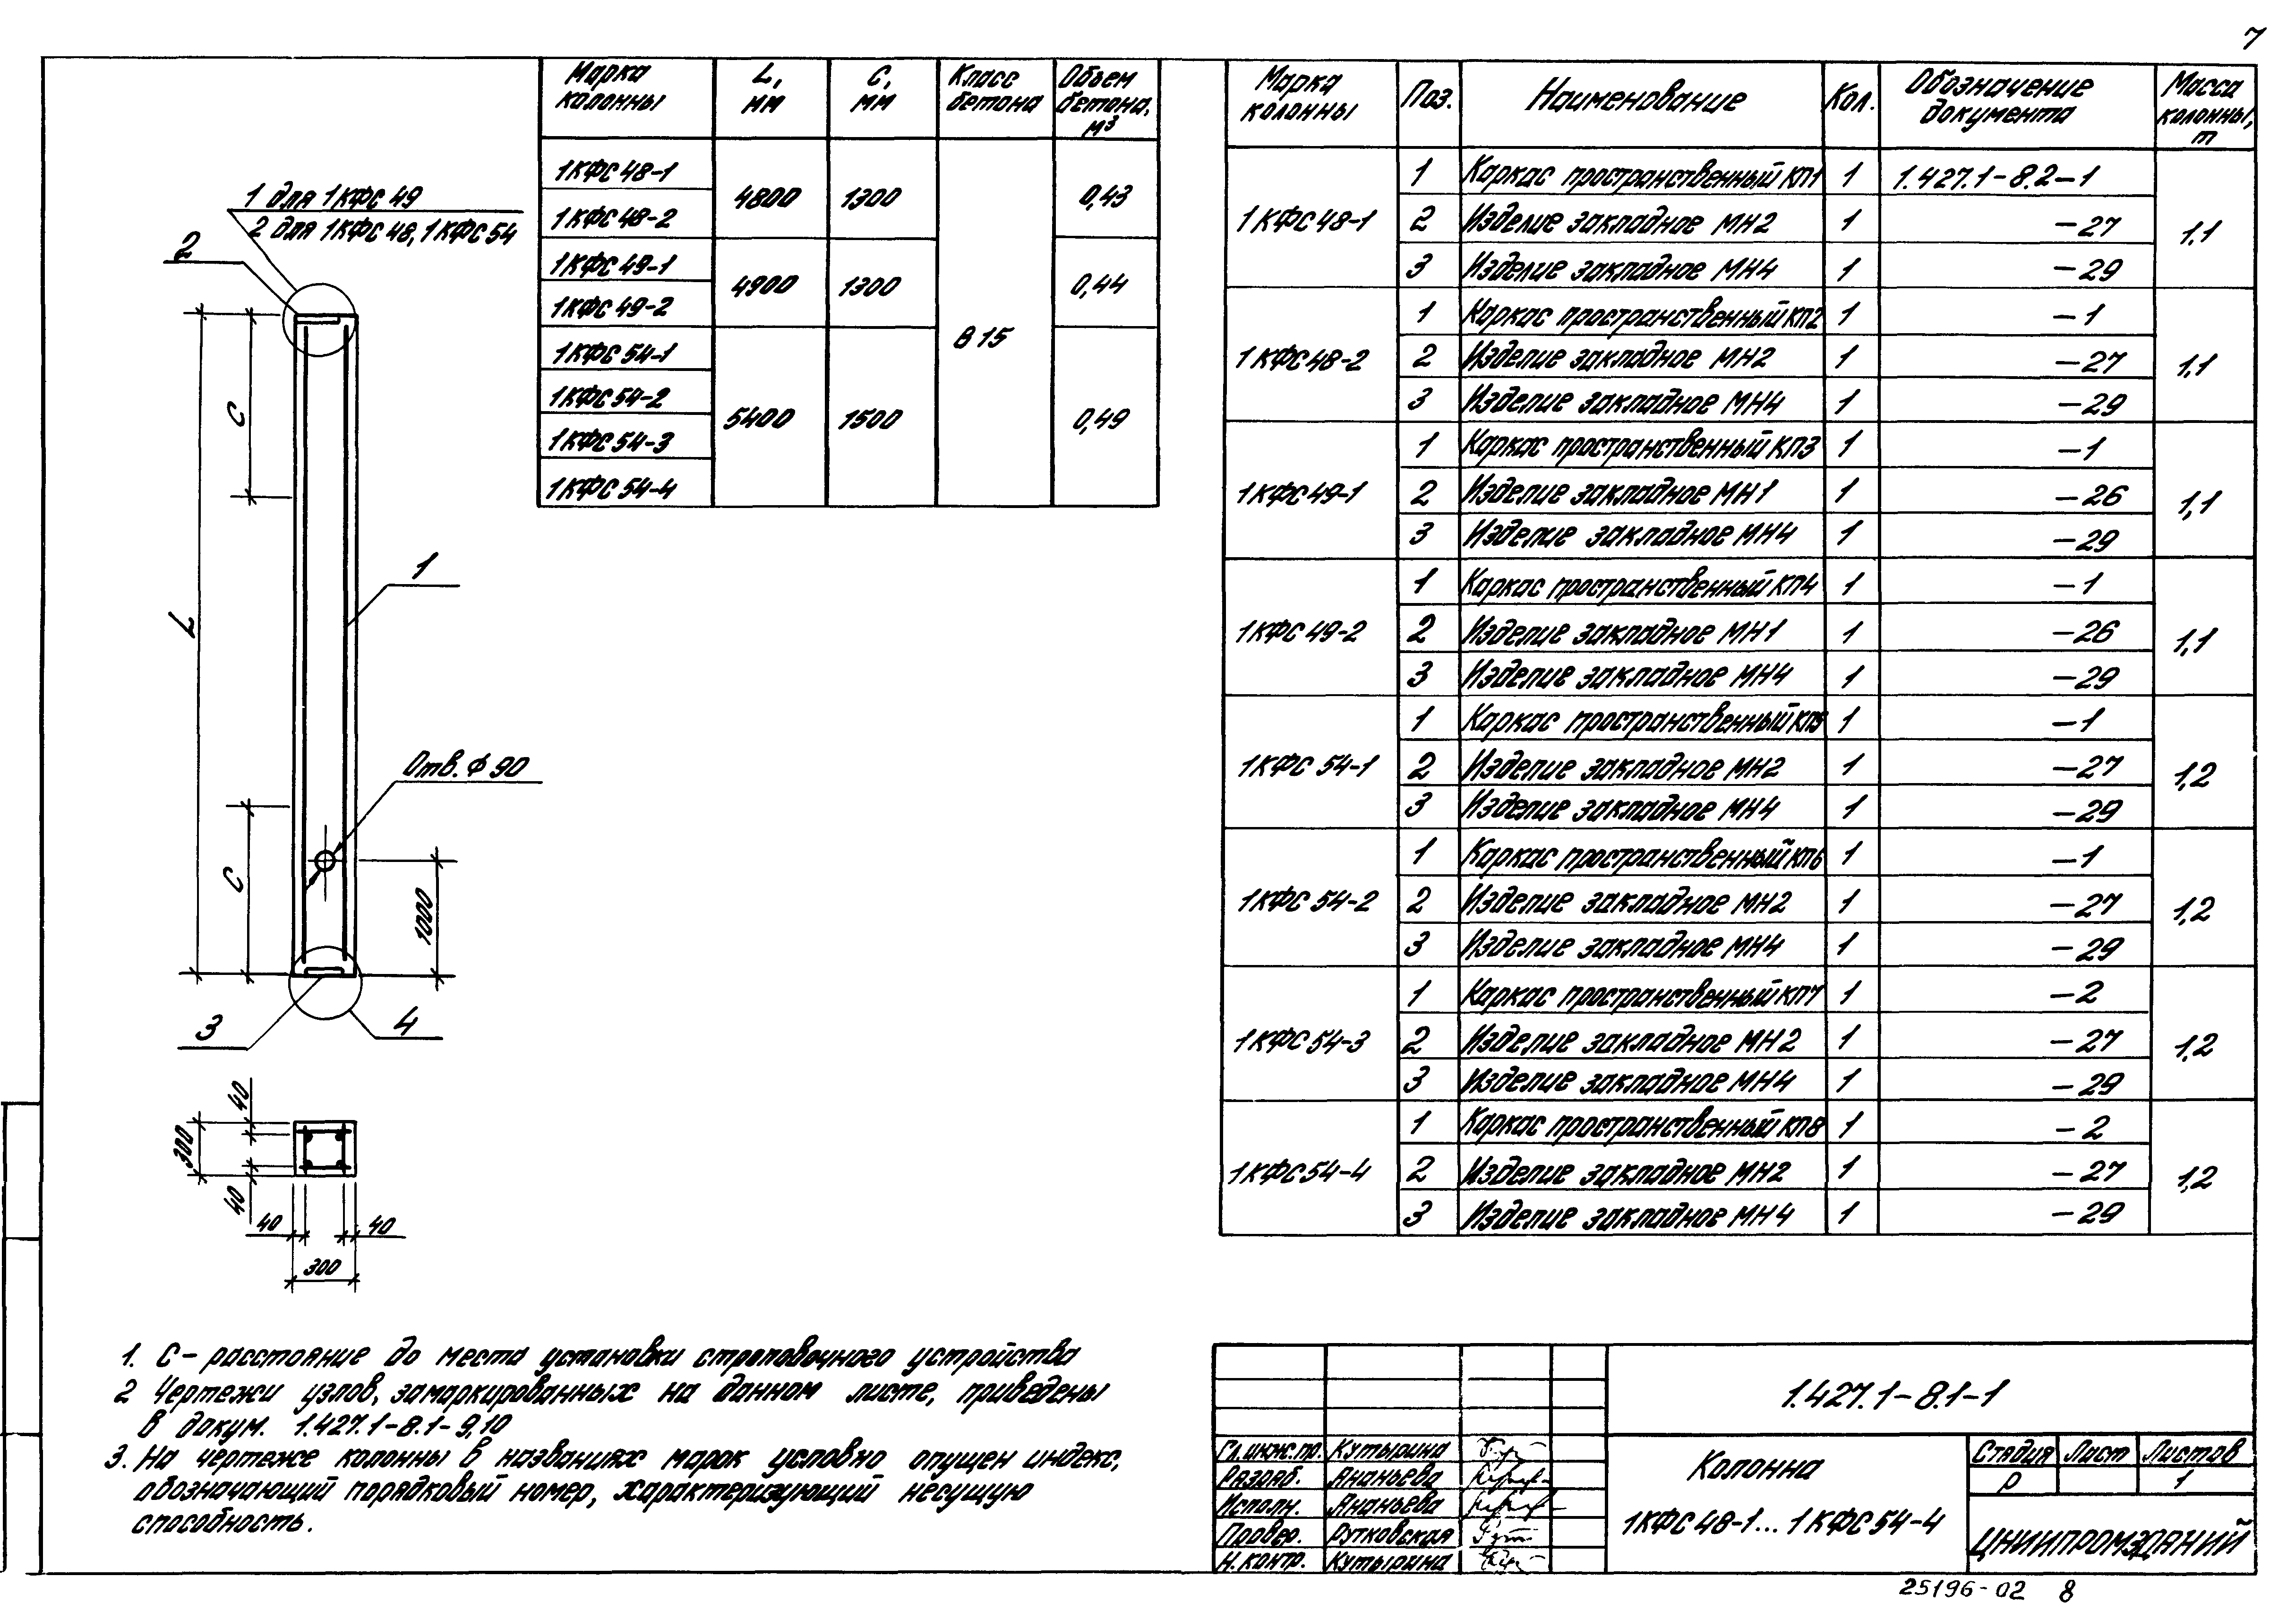 7
Марка колонны | L, мм | С, мм | Класс бетона | Объем бетона, м³
1КФС 48-1 | 4800 | 1300 | В 15 | 0,43
1КФС 48-2
1КФС 49-1 | 4900 | 1300 | 0,44
1КФС 49-2
1КФС 54-1 | 5400 | 1500 | 0,49
1КФС 54-2
1КФС 54-3
1КФС 54-4
1 для 1КФС 49
2 для 1КФС 48, 1КФС 54
2
С
L
1
Отв. Ф 90
С
1000
3
4
40
300
40
40
40
300
Марка колонны | Поз. | Наименование | Кол. | Обозначение документа | Масса колонны, т
1КФС 48-1 | 1 | Каркас пространственный КП1 | 1 | 1.427.1-8.2-1 | 1,1
2 | Изделие закладное МН2 | 1 | -27
3 | Изделие закладное МН4 | 1 | -29
1КФС 48-2 | 1 | Каркас пространственный КП2 | 1 | -1 | 1,1
2 | Изделие закладное МН2 | 1 | -27
3 | Изделие закладное МН4 | 1 | -29
1КФС 49-1 | 1 | Каркас пространственный КП3 | 1 | -1 | 1,1
2 | Изделие закладное МН1 | 1 | -26
3 | Изделие закладное МН4 | 1 | -29
1КФС 49-2 | 1 | Каркас пространственный КП4 | 1 | -1 | 1,1
2 | Изделие закладное МН1 | 1 | -26
3 | Изделие закладное МН4 | 1 | -29
1КФС 54-1 | 1 | Каркас пространственный КП5 | 1 | -1 | 1,2
2 | Изделие закладное МН2 | 1 | -27
3 | Изделие закладное МН4 | 1 | -29
1КФС 54-2 | 1 | Каркас пространственный КП6 | 1 | -1 | 1,2
2 | Изделие закладное МН2 | 1 | -27
3 | Изделие закладное МН4 | 1 | -29
1КФС 54-3 | 1 | Каркас пространственный КП7 | 1 | -2 | 1,2
2 | Изделие закладное МН2 | 1 | -27
3 | Изделие закладное МН4 | 1 | -29
1КФС 54-4 | 1 | Каркас пространственный КП8 | 1 | -2 | 1,2
2 | Изделие закладное МН2 | 1 | -27
3 | Изделие закладное МН4 | 1 | -29
1. С - расстояние до места установки строповочного устройства
2 Чертежи узлов, замаркированных на данном листе, приведены
в докум. 1.427.1-8.1-9,10
3. На чертеже колонны в названиях марок условно опущен индекс,
обозначающий порядковый номер, характеризующий несущую
способность.
1.427.1-8.1-1
Гл.инж.пр. Кутырина
Разраб. Ананьева
Исполн. Ананьева
Провер. Рутковская
Н.контр. Кутырина
Колонна
1КФС 48-1... 1КФС 54-4
Стадия | Лист | Листов
Р | | 1
ЦНИИПРОМЗДАНИЙ
25196-02 8